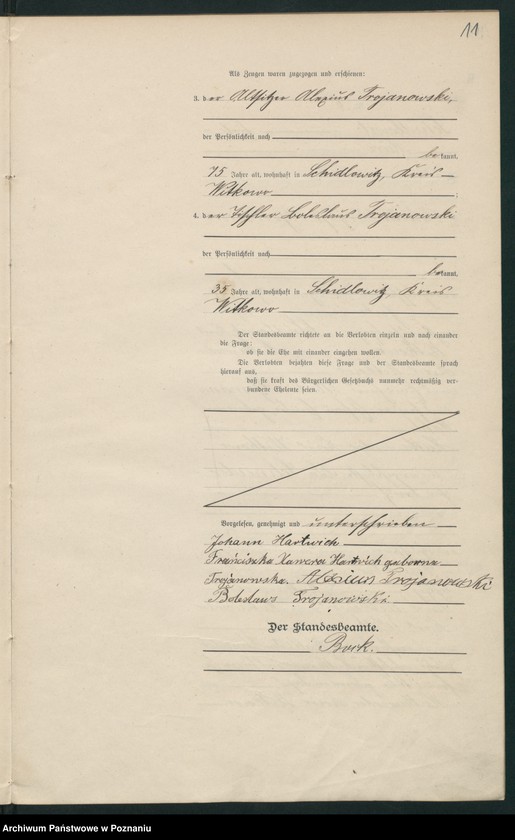 11
Als Zeugen waren zugezogen und erschienen:
3. der Altsitzer Alexius Trojanowski,
der Persönlichkeit nach
bekannt,
75 Jahre alt, wohnhaft in Schidlowitz, Kreis
Witkowo ;
4. der Tischler Boleslaus Trojanowski
der Persönlichkeit nach
bekannt,
35 Jahre alt, wohnhaft in Schidlowitz, Kreis
Witkowo
Der Standesbeamte richtete an die Verlobten einzeln und nach einander
die Frage:
ob sie die Ehe mit einander eingehen wollen.
Die Verlobten bejahten diese Frage und der Standesbeamte sprach
hierauf aus,
daß sie kraft des Bürgerlichen Gesetzbuchs nunmehr rechtmäßig ver-
bundene Eheleute seien.
Vorgelesen, genehmigt und unterschrieben
Johann Hartwich
Franciszka Xawera Hartwich geborene
Trojanowska. Alexius Trojanowski
Boleslaws Trojanowski
Der Standesbeamte.
Bork.
Archiwum Państwowe w Poznaniu